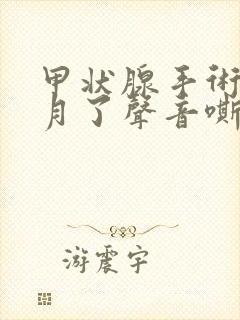 甲状腺手术
月了聲音嘶
游震宇